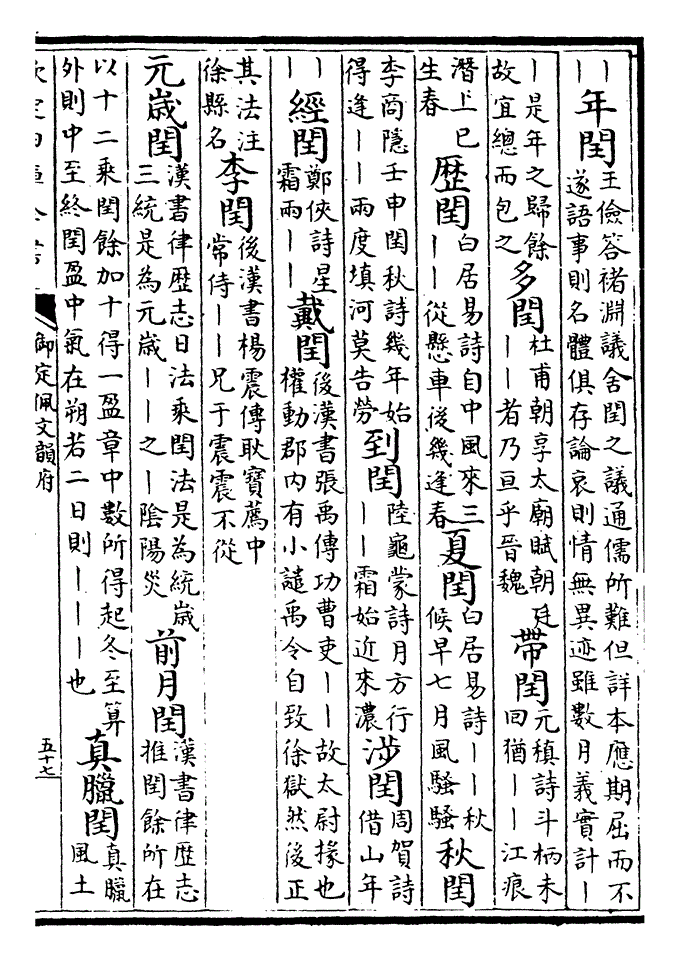 丨丨年閏王儉答褚淵議舍閏之議通儒所難但詳本應期屈而不
遂語事則名體俱存論哀則情無異迹雖數月義實計丨
丨是年之歸餘
故宜總而包之
多閏杜甫朝享太廟賦朝廷
丨丨者乃亘乎晉魏
帶閏元稹詩斗柄未
回猶丨丨江痕
潛上巳
生春
歴閏白居易詩自中風來三
丨丨從懸車後幾逢春
夏閏白居易詩丨丨秋
候早七月風騷騷
秋閏
李商隱壬申閏秋詩幾年始
得逢丨丨兩度填河莫告勞
到閏陸龜蒙詩月方行
丨丨霜始近來濃
涉閏周賀詩
借山年
丨丨
經閏鄭俠詩星
霜兩丨丨
戴閏後漢書張禹傳功曹吏丨丨故太尉掾也
權動郡内有小譴禹令自致徐獄然後正
其法注
徐縣名
李閏後漢書楊震傳耿寶薦中
常侍丨丨兄于震震不從
元歲閏漢書律歴志日法乘閏法是為統歲
三統是為元歲丨丨之丨陰陽災
前月閏漢書律歴志
推閏餘所在
以十二乘閏餘加十得一盈章中數所得起冬至算
外則中至終閏盈中氣在朔若二日則丨丨丨也
真臘閏真臘
風土
欽定四庫全書
御定佩文韻府
五十七